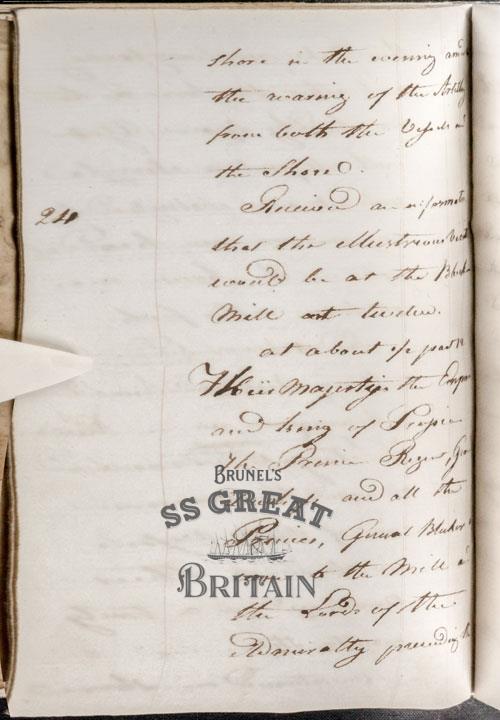 shore in the evening and
the roaring of the Artill
from both the Vessels a
the Shore.
24 Received an informat
that the illustrious
would be at the Block
Mill at twelve.
at about 1/2 past
Their Majestys the Emp
and King of
The Prince Regen
and all the
Princes, General Blucher
to the Mill
the Lords of the
Admiralty preceeding
BRUNEL'S
SS GREAT
BRITAIN